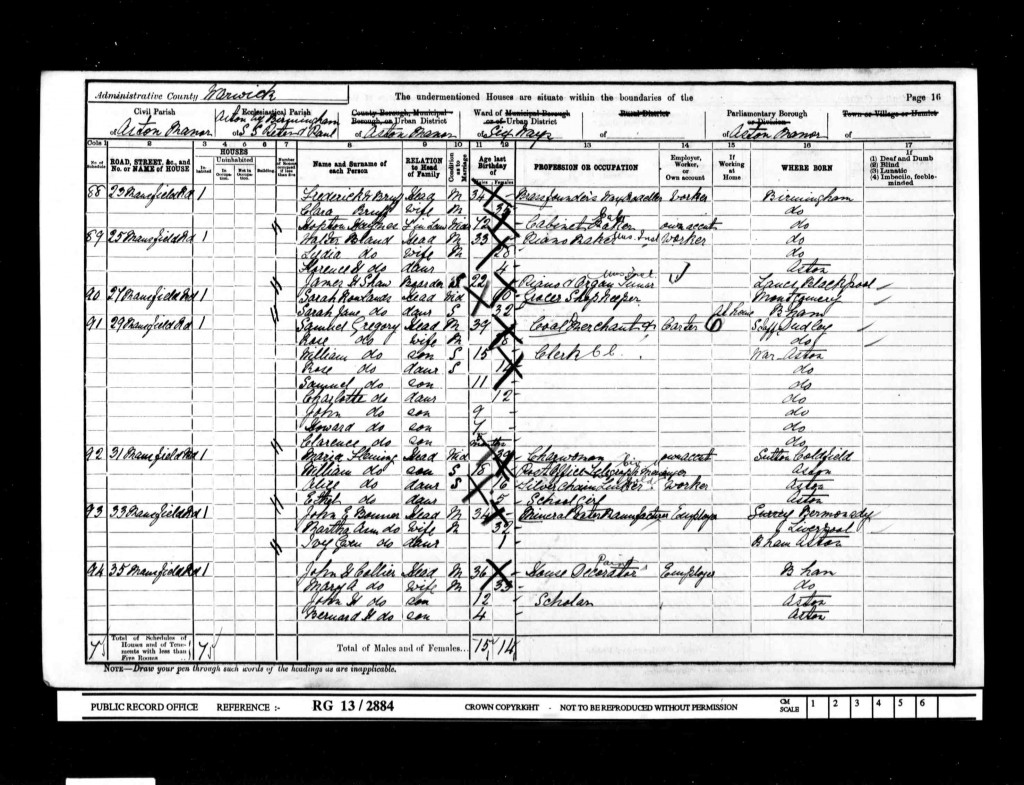 Administrative County Warwick The undermentioned Houses are situate within the boundaries of the Page 16
Civil Parish Ecclesiastical Parish County Borough, Municipal Borough, or Urban District Ward of Municipal Borough or of Urban District Rural District Parliamentary Borough or Division Town or Village or Hamlet
of Aston Manor of S.S. Peter & Paul of Aston Manor of Six Ways of of Aston Manor of
Cols 1 2 3 4 5 6 7 8 9 10 11 12 13 14 15 16 17
No. of Schedule ROAD, STREET, &c., and No. or NAME of HOUSE HOUSES Inhabited Uninhabited In Occupation Not in Occupation Building Number of Rooms occupied if less than five Name and Surname of each Person RELATION to Head of Family Condition as to Marriage Age last Birthday of Males Females PROFESSION OR OCCUPATION Employer, Worker, or Own account If Working at Home WHERE BORN If (1) Deaf and Dumb (2) Blind (3) Lunatic (4) Imbecile, feeble-minded
88 23 Mansfield Rd 1 Head M 34 Worker Birmingham
Clara wife M do
72 Cabinet Maker own acct do
89 25 Mansfield Rd 1 Walter Bland Head M 33 Piano Maker Worker do
Lydia do wife M 28 do
Florence do daur 4 Aston
James H Shaw Boarder S 22 Piano & Organ Tuner Lancs Blackpool
90 27 Mansfield Rd 1 Sarah Rowlands Head Wid Grocer Shop Keeper At home Montgomery
Sarah Jane do daur S 32 B'ham
91 29 Mansfield Rd 1 Samuel Gregory Head M 39 Coal Merchant & Carter Staff Sedley
Rose do wife M 38 do
William do son S 15 Clerk War Aston
Rose do daur S 14 do
Samuel do son 11 do
Charlotte do daur 12 do
John do son 9 do
Howard do son 7 do
Clarence do son 5 months do
92 31 Mansfield Rd 1 Maria Fleming Head Wid 39 Charwoman own acct Sutton Coldfield
William do son S 18 Post Office Telegraph Messenger Aston
Alice do daur S 16 Silver Chain Linker Worker Aston
Ethel do daur 5 School Girl Aston
93 33 Mansfield Rd 1 John E Bonner Head M 34 Mineral Water Manufacturer Employer Surrey Bermondsey
Martha Ann do wife M 32 Liverpool
Ivy Gwen do daur 1 B'ham Aston
94 35 Mansfield Rd 1 John H Collier Head M 36 House Decorator Paint Employer B'ham
Mary A do wife M 33 do
John H do son 12 Scholar Aston
Bernard H do son 4 Aston
7 Total of Schedules of Houses and of Tenements with less than Five Rooms 7 Total of Males and of Females... 15 14
NOTE—Draw your pen through such words of the headings as are inapplicable.
PUBLIC RECORD OFFICE REFERENCE :- RG 13/2884 CROWN COPYRIGHT - NOT TO BE REPRODUCED WITHOUT PERMISSION CM SCALE 1 2 3 4 5 6